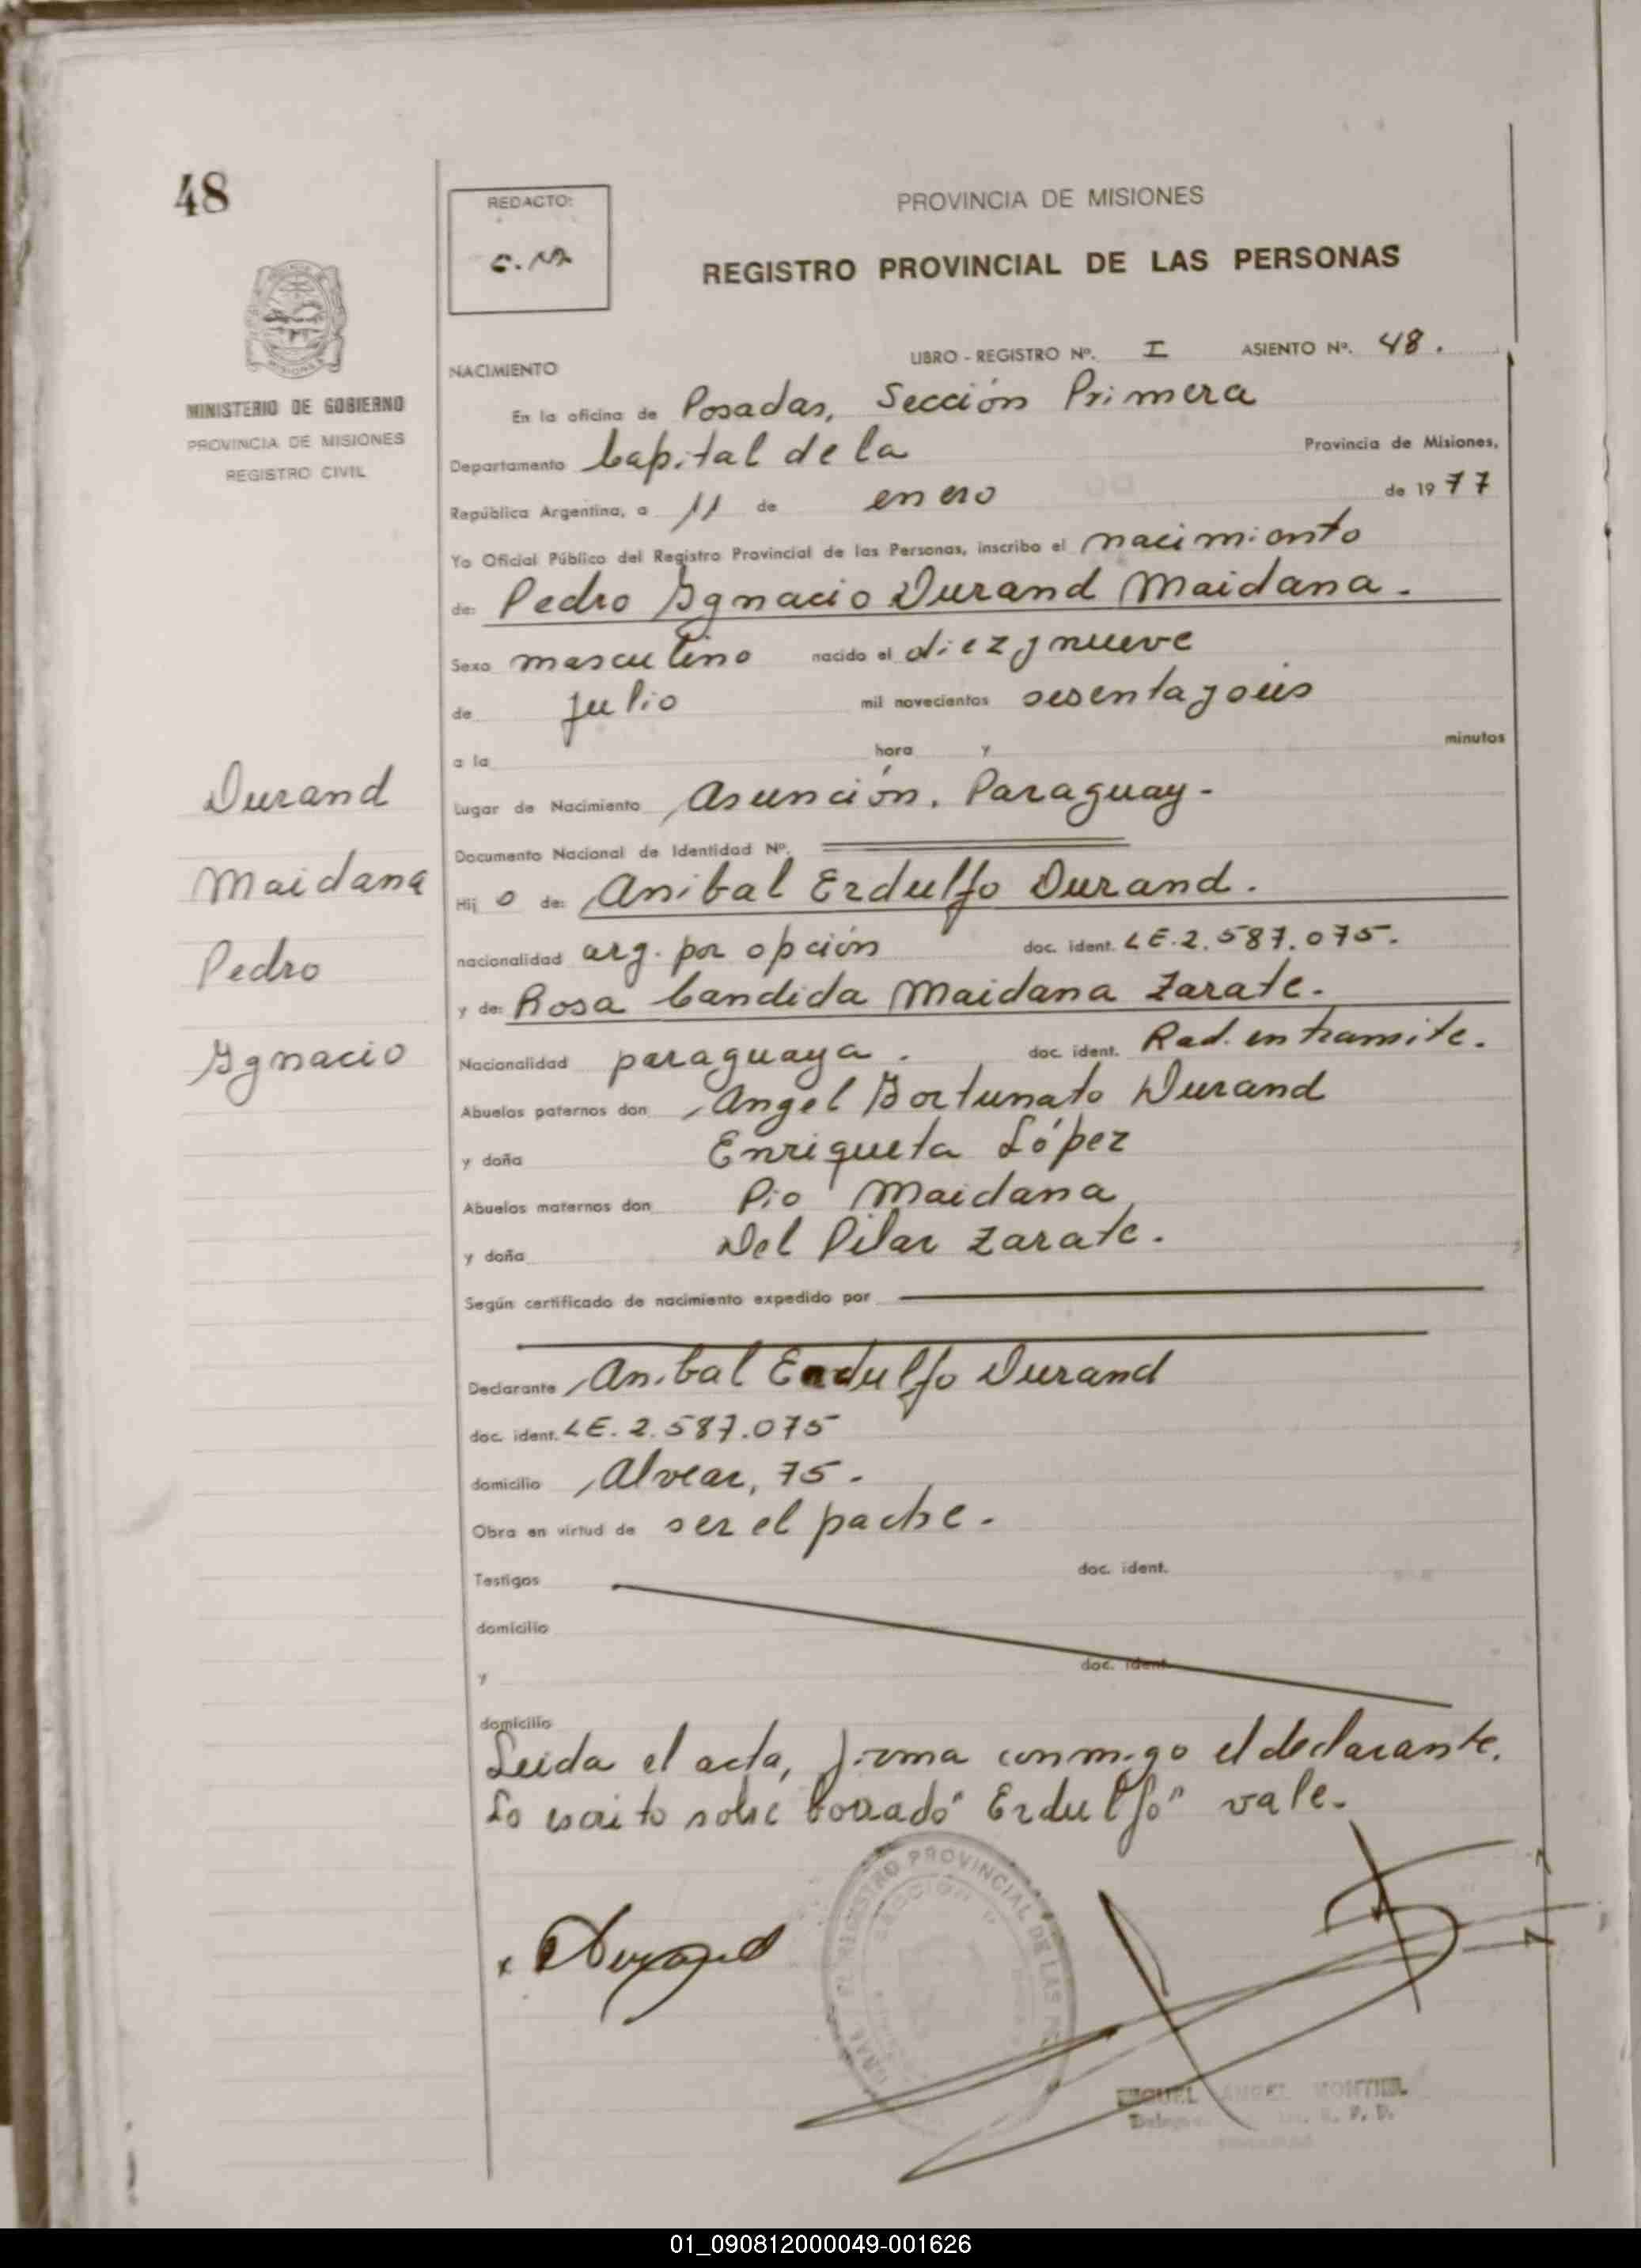 48
REDACTO:
PROVINCIA DE MISIONES
REGISTRO PROVINCIAL DE LAS PERSONAS
MINISTERIO DE GOBIERNO
PROVINCIA DE MISIONES
REGISTRO CIVIL
LIBRO - REGISTRO Nº. I ASIENTO Nº. 48.
NACIMIENTO
En la oficina de Posadas, Sección Primera
Departamento Capital de la Provincia de Misiones,
República Argentina, a 11 de enero de 1977
Yo Oficial Público del Registro Provincial de las Personas, inscribo el nacimiento
de: Pedro Ygnacio Durand Maidana.
Sexo masculino nacido el diez y nueve
de julio mil novecientos sesenta y seis
a la hora y minutos
Lugar de Nacimiento Asunción, Paraguay-
Documento Nacional de Identidad Nº.
Hij o de: Anibal Erdulfo Durand.
nacionalidad arg. por opción doc. ident. LE.2.587.075.
y de: Rosa Candida Maidana Zarate.
Nacionalidad paraguaya. doc. ident. Rad. en tramite.
Abuelos paternos don Angel Fortunato Durand
y doña Enriqueta López
Abuelos maternos don Pio Maidana
y doña Del Pilar Zarate.
Según certificado de nacimiento expedido por
Declarante Anibal Erdulfo Durand
doc. ident. LE. 2.587.075
domicilio Alvear, 75.
Obra en virtud de ser el padre.
Testigos doc. ident.
domicilio
y doc. ident.
domicilio
Leida el acta, firma conmigo el declarante.
Lo escrito sobre borrado "Erdulfo" vale.
Durand
Maidana
Pedro
Ygnacio
REGISTRO PROVINCIAL DE LAS
SECCION
MIGUEL ANGEL MONTIEL
01_090812000049-001626